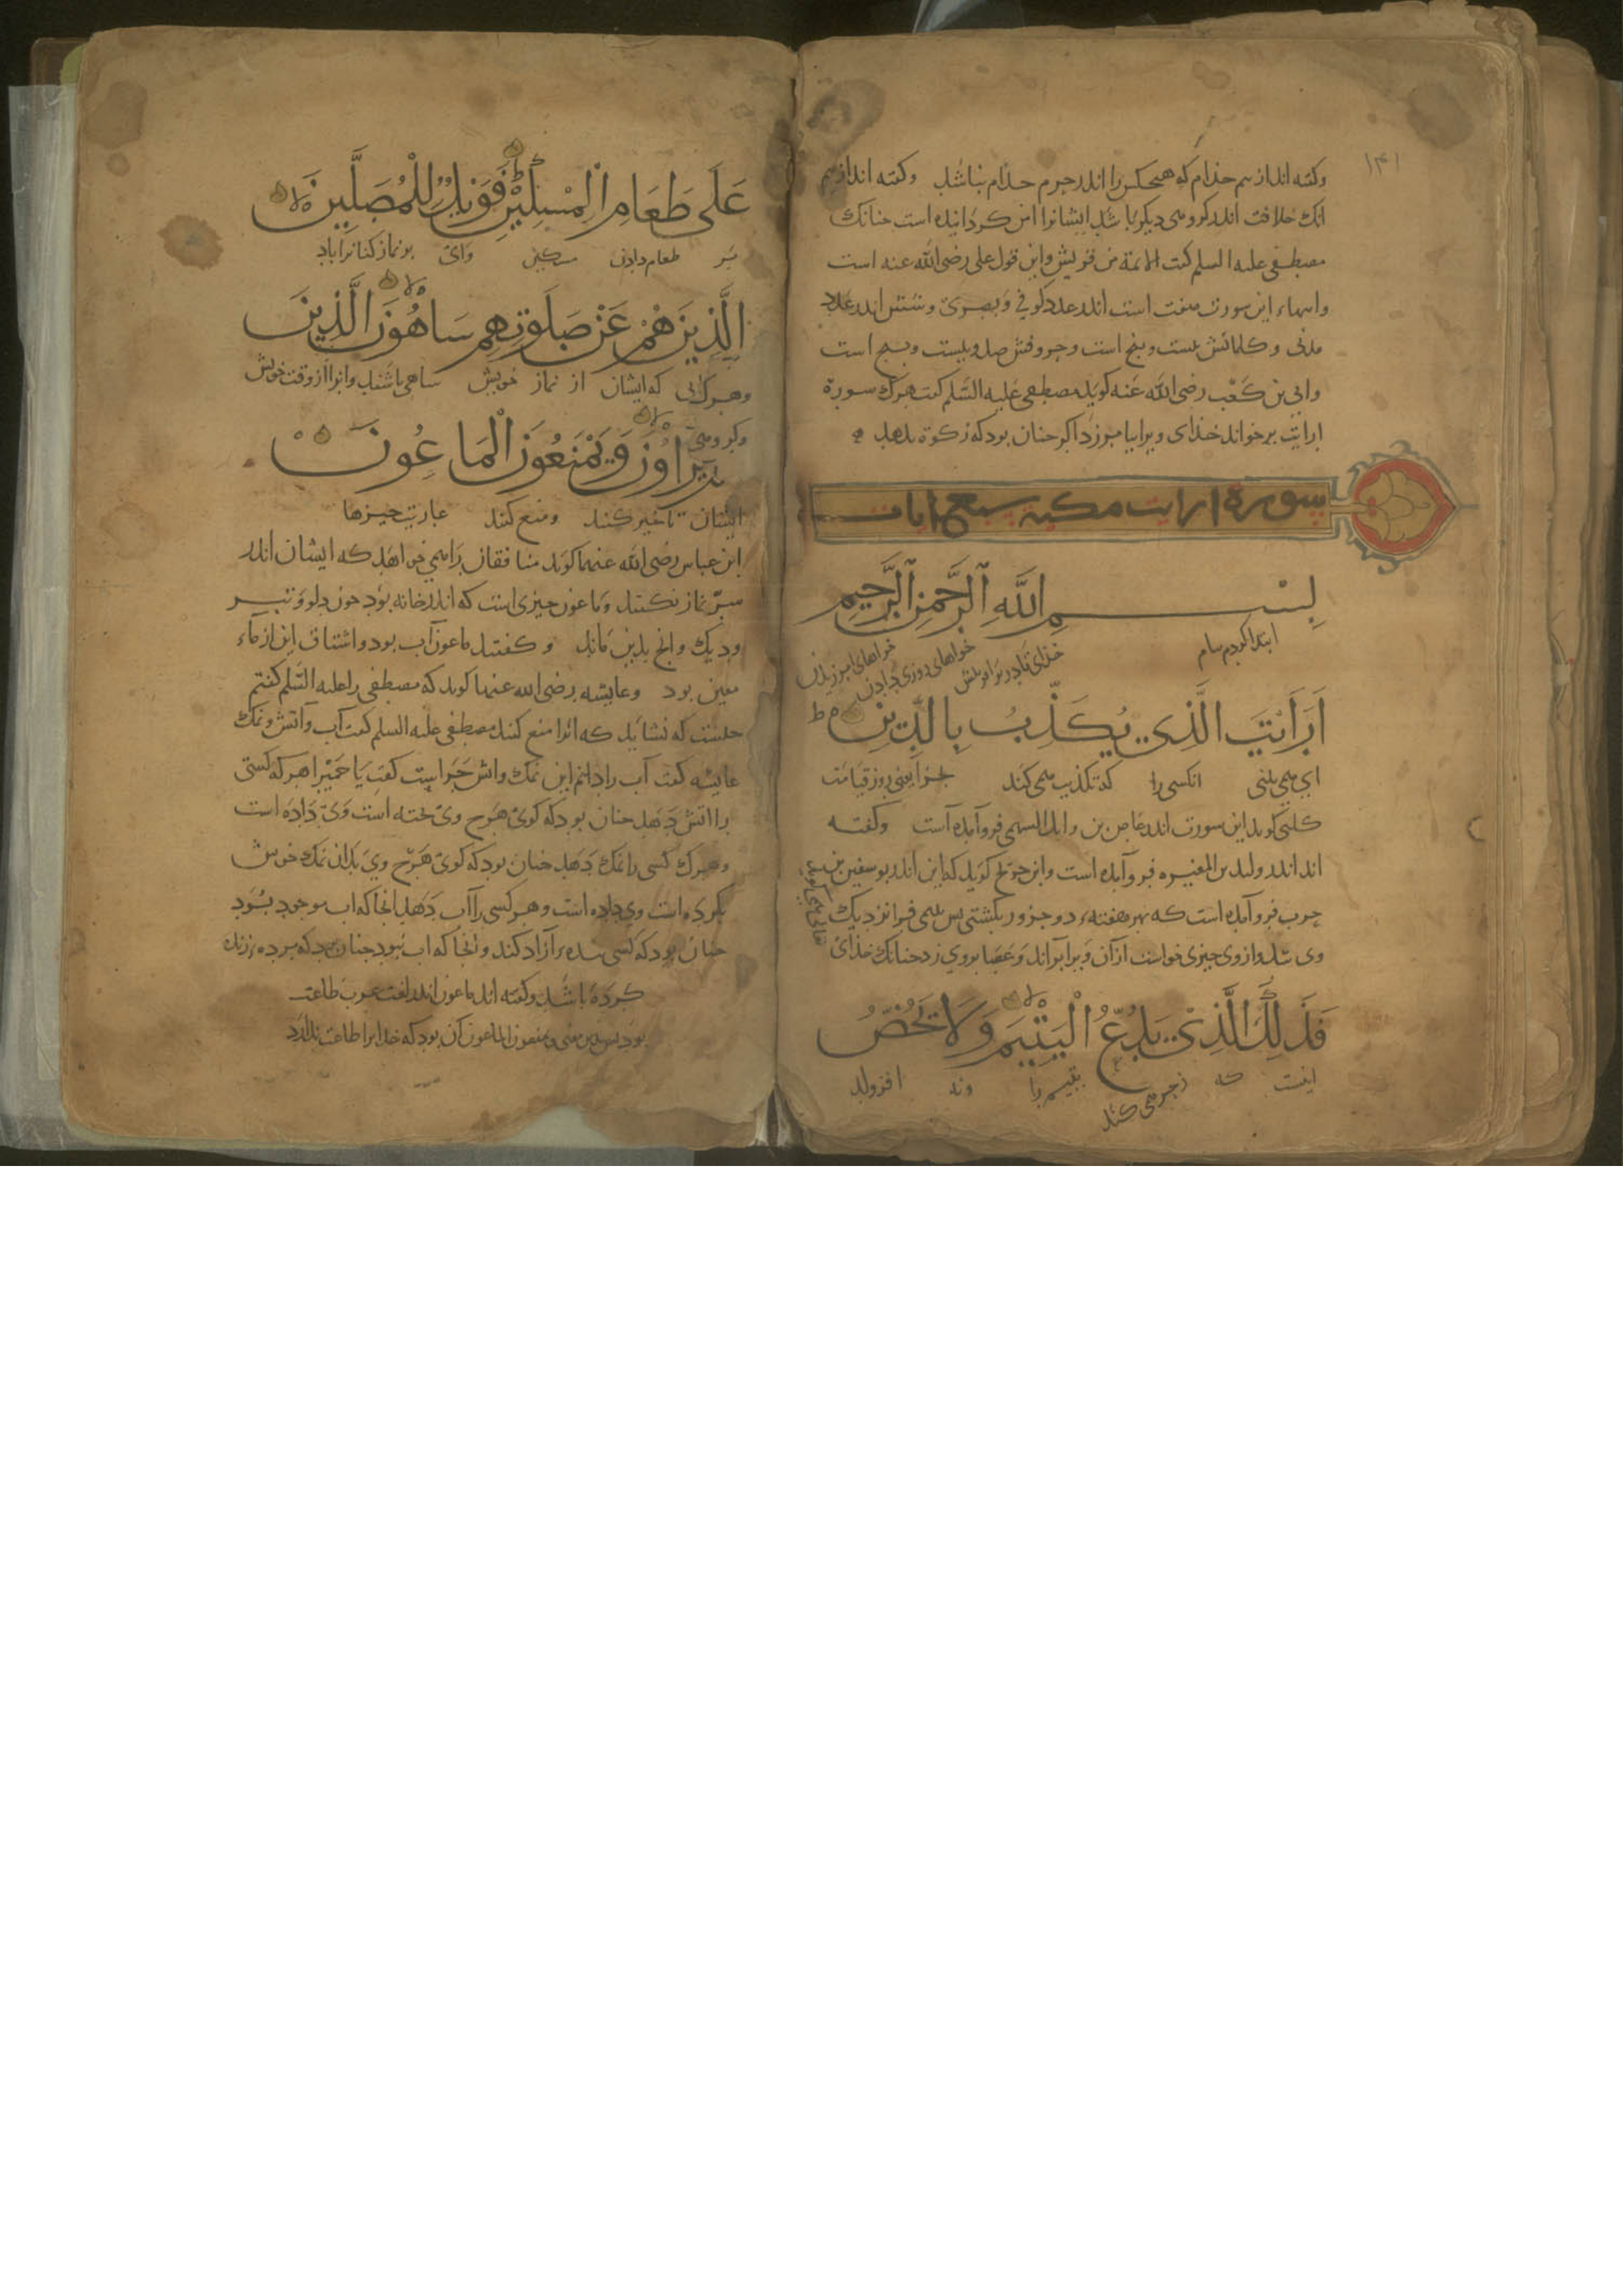 ۱۴۱
وکفته اند از بیم جذام که هیچکس را اندر حرم جذام نباشد وکفته اند از بیم
انک خلافت اندر کروهی دیکر باشد ایشانرا امن کردانیده است چنانک
مصطفی علیه السلم کفت الائمة من قریش واین قول علی رضی الله عنه است
وایهاء این سورت هفت است اندر عدد کوفی و بصری وشش اندر عدد
مدنی وکلماتش بیست وپنج است وحروفش صد وبیست وپنج است
وابی بن کعب رضی الله عنه کوید مصطفی علیه السلم کفت هرک سورة
ارایت برخواند خدای ویرا بیامرزد اکر چنان بود که زکوة بدهد
سورة ارایت مکیة سبع ایات
بِسْمِ اللهِ الرَّحْمٰنِ الرَّحِيمِ
ابتدا کردم بنام خدای قادر بر آفرینش خواهای روزی دادن خواهای امرزیدن
اَرَاَيْتَ الَّذِي يُكَذِّبُ بِالدِّينِ ط
ای می بینی انکسی را که تکذیب می کند جزا یعنی روز قیامت
کلبی کوید این سورت اندر عاص بن وایل السهمی فرو آمده است وکفته
اند اندر ولید بن المغیره فرو آمده است وابن جریج کوید که این اندر بوسفین بن
حرب فرو آمده است که بهر هفتهء دو جزور بکشتی پس یتیمی فرا نزدیک
وی شد واز وی چیزی خواست از آن ویرا براند وعصا بر وی زد چنانک خدای
فَذٰلِكَ الَّذِي يَدُعُّ الْيَتِيمَ وَلَا يَحُضُّ
اینست که زجر می کند یتیم را ونه افزولد
عَلَى طَعَامِ الْمِسْكِينِ فَوَيْلٌ لِلْمُصَلِّينَ
بر طعام دادن مسکین وای بر نماز کنانرا باد
الَّذِينَ هُمْ عَنْ صَلٰوتِهِمْ سَاهُونَ الَّذِينَ
وهرک انی که ایشان از نماز خویش ساهی باشند وانرا از وقت خویش
هُمْ يُرَآؤُنَ وَيَمْنَعُونَ الْمَاعُونَ
ایشان تاخیر کنند ومنع کنند عاریت چیزها
ابن عباس رضی الله عنهما کوید منافقان را می خواهد که ایشان اندر
سرّ نماز نکنند وماعون چیزی است که اندر خانه بود چون دلو وتبر
ودیک وانچ بدین ماند وکفتند ماعون آب بود واشتقاق این از ماء
معین بود وعایشه رضی الله عنها کوید که مصطفی را علیه السلم کفتم
چیست که نشاید که انرا منع کنند مصطفی علیه السلم کفت آب وآتش ونمک
عایشه کفت آب را دانم این نمک واتش چراست کفت یا حمیرا هر که کسی
را اتش دهد چنان بود که کویی هرچ وی پخته است وی داده است
وهرک کسی را نمک دهد چنان بود که کویی هرچ وی بدان نمک خوش
بکرده است وی داده است وهر کسی را آب دهد انجا که اب موجود بود
چنان بود که کسی بنده را آزاد کند وانجا که اب نبود چنان بود که مرده زنده
کرده باشد وکفته اند ماعون اندر لغت عرب طاعت
بود پس ویمنعون الماعون آن بود که خدایرا طاعت ندارد